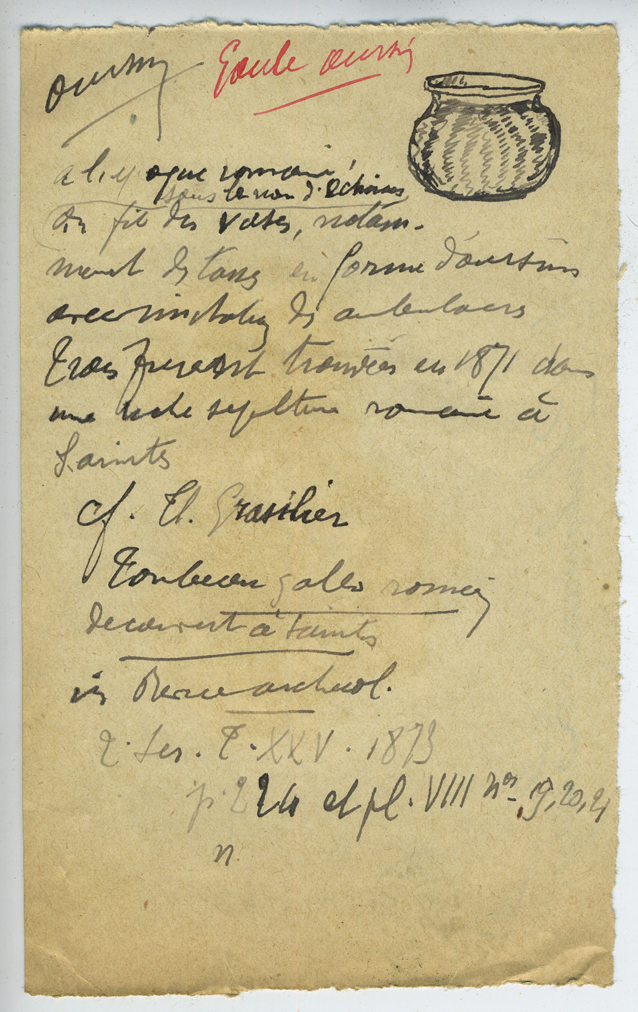 oursin
Gaule oursin
a l'époque romaine,
sous le nom d'Echinus
on fit des vases, notam-
ment des tasses en forme d'oursins
avec imitation des ambulacres
Trois furent trouvées en 1871 dans
une riche sépulture romaine à
Saintes
cf. Th. Grasilier
Tombeau gallo romain
decouvert à Saintes
in Revue archéol.
2. Ser. T. XXV. 1873
p. 224 et pl. VIII nos 19, 20, 21
n